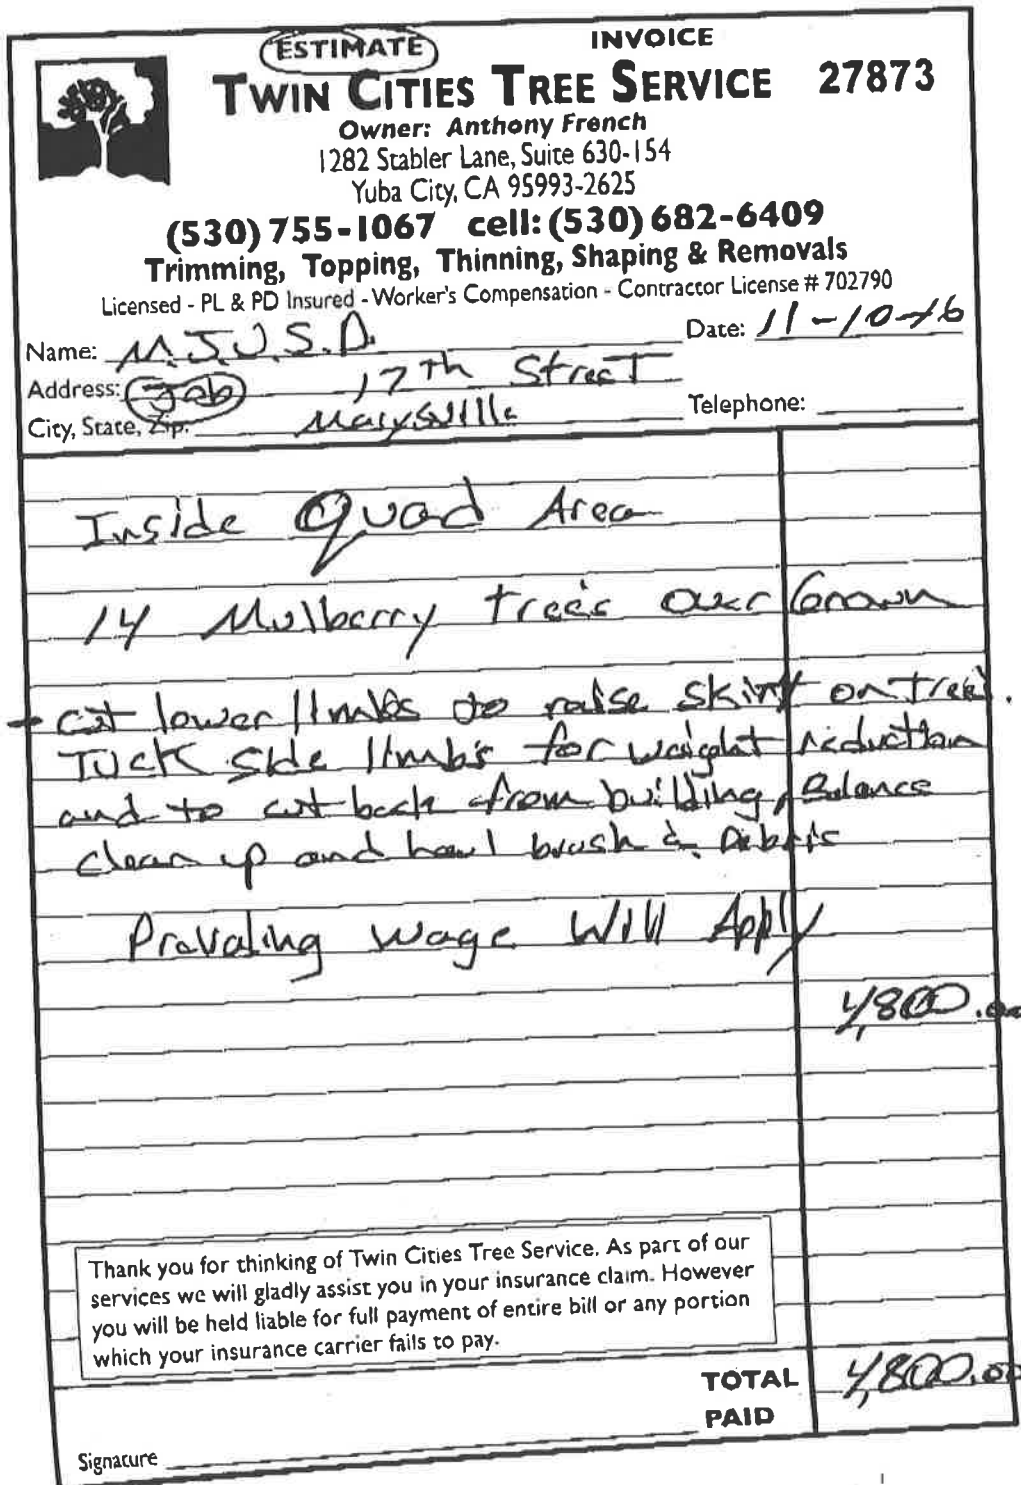 ESTIMATE INVOICE
TWIN CITIES TREE SERVICE 27873
Owner: Anthony French
1282 Stabler Lane, Suite 630-154
Yuba City, CA 95993-2625
(530) 755-1067 cell: (530) 682-6409
Trimming, Topping, Thinning, Shaping & Removals
Licensed - PL & PD Insured - Worker's Compensation - Contractor License # 702790
Name: M.J.U.S.D. Date: 11-10-16
Address: Job 17th Street
City, State, Zip: Marysville Telephone:
Inside Quad Area
14 Mulberry trees over Grown
- cut lower limbs to raise skirt on trees.
Tuck Side limbs for weight reduction
and to cut back from building, Balance
clean up and haul brush & Debris
Prevaling wage Will Apply
4,800.00
Thank you for thinking of Twin Cities Tree Service. As part of our
services we will gladly assist you in your insurance claim. However
you will be held liable for full payment of entire bill or any portion
which your insurance carrier fails to pay.
TOTAL 4,800.00
PAID
Signature